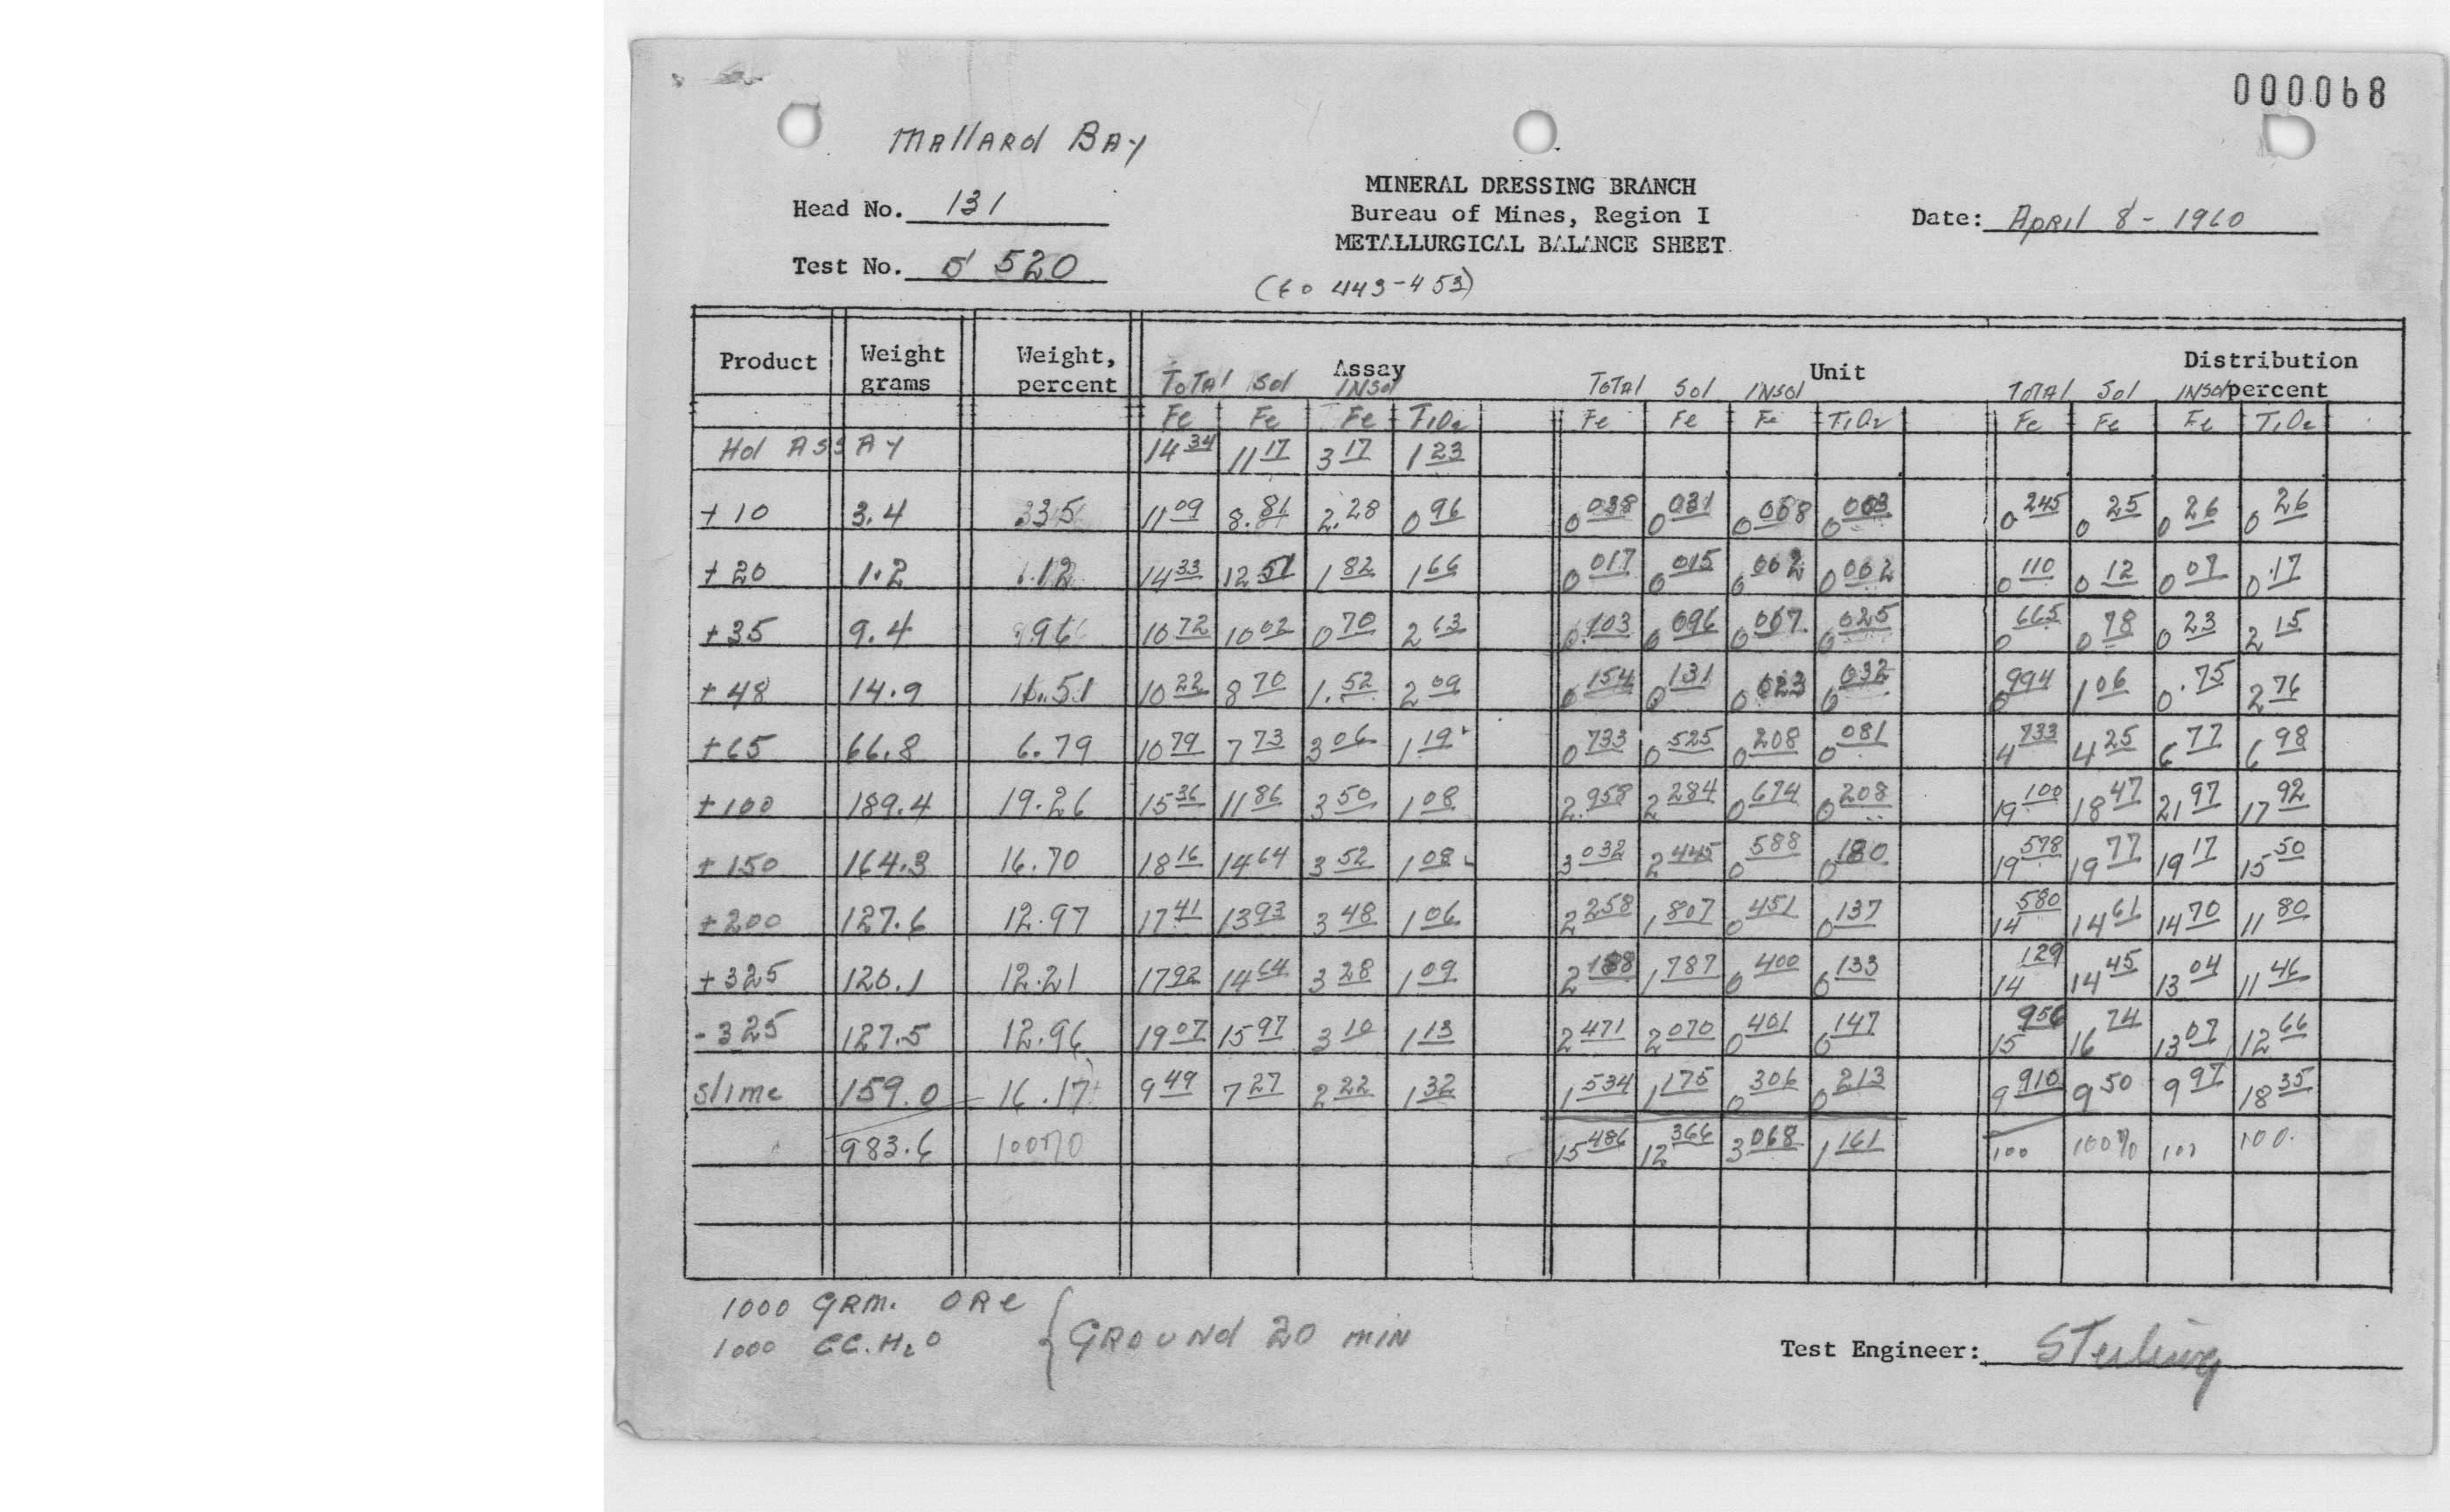 000068
Mallard Bay
MINERAL DRESSING BRANCH
Head No. 131
Bureau of Mines, Region I
Date: April 8 - 1960
METALLURGICAL BALANCE SHEET
Test No. 520
443-453)
Product Weight grams Weight, percent Assay Unit Distribution percent
Total Sol Insol Total Sol Insol Total Sol Insol
Fe Fe Fe TiO2 Fe Fe Fe TiO2 Fe Fe Fe TiO2
Hd Assay 14 34 11 17 3 17 1 23
+10 3.4 .335 11 09 8.81 2.28 0 96 0 038 0 031 0 008 0 003 0 245 0 25 0 26 0 26
+20 1.2 .12 14 33 12 51 1 82 1 66 0 017 0 015 0 002 0 002 0 110 0 12 0 07 0 17
+35 9.4 .96 10 72 10 02 0 70 2 63 0.103 0 096 0 007 0 025 0 665 0 78 0 23 2 15
+48 14.9 1.51 10 22 8 70 1.52 2 09 0 154 0 131 0 023 0 032 0 994 1 06 0.75 2 76
+65 66.8 6.79 10 79 7 73 3 06 1 19 0 733 0 525 0 208 0 081 4 733 4 25 6 77 6 98
+100 189.4 19.26 15 36 11 86 3 50 1 08 2.958 2 284 0 674 0 208 19 100 18 47 21 97 17 92
+150 164.3 16.70 18 16 14 64 3 52 1 08 3 032 2 445 0 588 0 180 19 578 19 77 19 17 15 50
+200 127.6 12.97 17 41 13 93 3 48 1 06 2 258 1 807 0 451 0 137 14 580 14 61 14 70 11 80
+325 120.1 12.21 17 92 14 64 3 28 1 09 2 188 1 787 0 400 0 133 14 129 14 45 13 04 11 46
-325 127.5 12.96 19 07 15 97 3 10 1 13 2 471 2 070 0 401 0 147 15 956 16 74 13 07 12 66
slime 159.0 16.17 9 49 7 27 2 22 1 32 1 534 1 175 0 306 0 213 9 910 9 50 9 97 18 35
983.6 100% 15 486 12 366 3 068 1 161 100 100% 100 100.
1000 GRM. ORE
1000 CC. H2O { GROUND 20 MIN
Test Engineer: Sterling